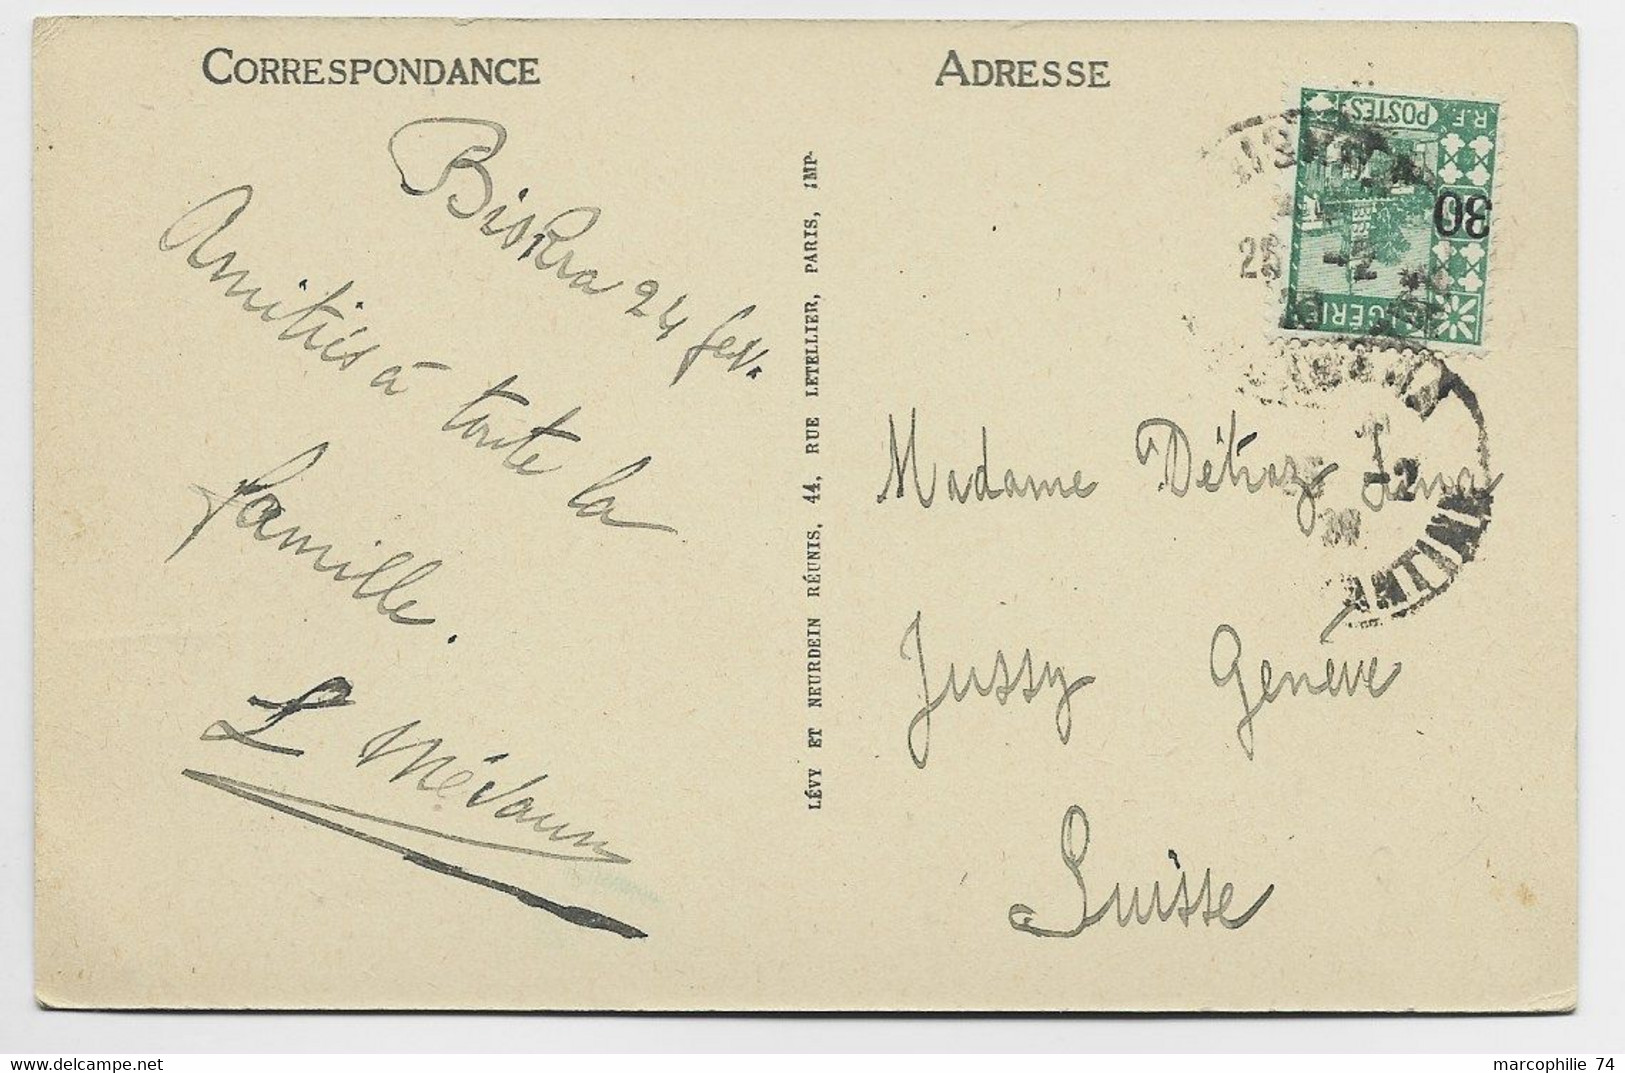 CORRESPONDANCE
ADRESSE
Biskra 24 fev.
Amitiés à toute la
famille.
LÉVY ET NEURDEIN RÉUNIS, 44, RUE LETELLIER, PARIS, IMP.
R.F. POSTES
30
ALGÉRIE
25 -2
30
-2
30
ANTINE
Madame Détraz
Jussy Genève
Suisse
marcophilie 74